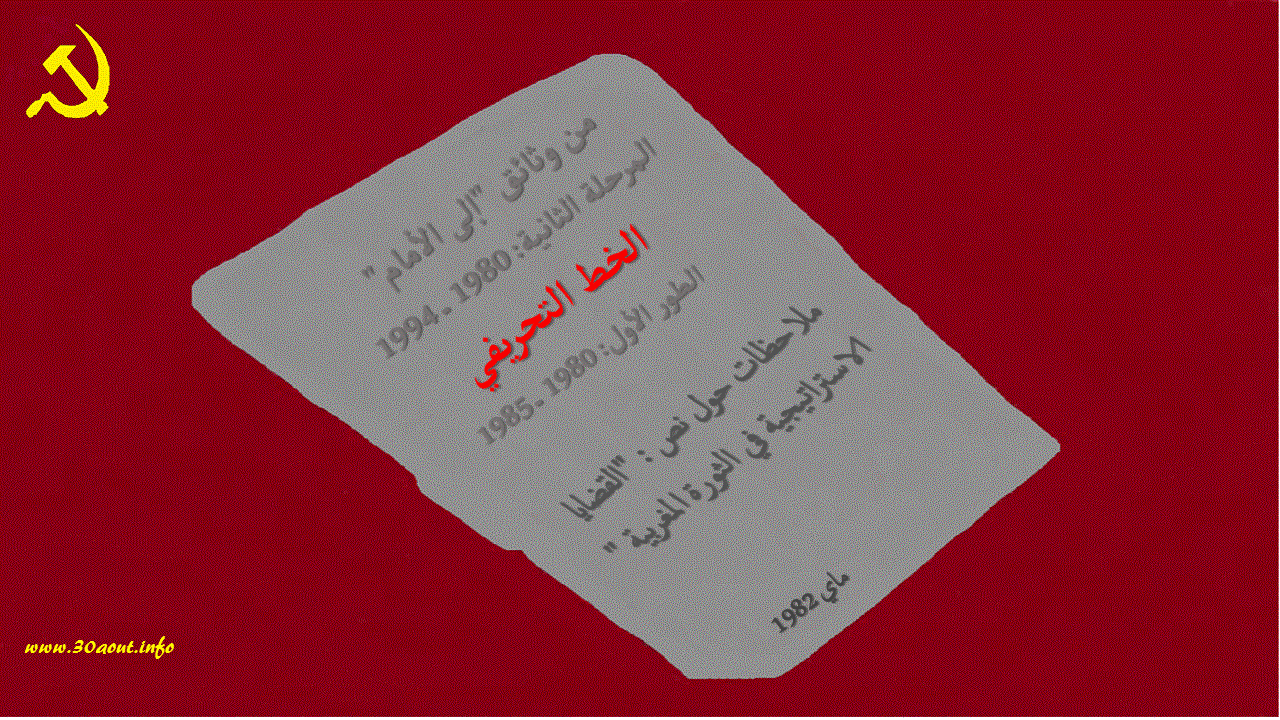 من وثائق "إلى الأمام"
المرحلة الثانية: 1980 ـ 1994
الخط التحريفي
الطور الأول: 1980 ـ 1985
ملاحظات حول نص : "القضايا
الاستراتيجية في الثورة المغربية "
ماي 1982
www.30aout.info